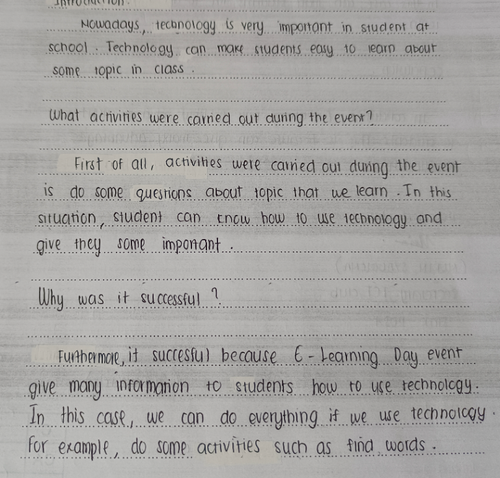 Introduction.
Nowadays, technology is very important in student at
school. Technology can make students easy to learn about
some topic in class.
What activities were carried out during the event?
First of all, activities were carried out during the event
is do some questions about topic that we learn. In this
situation, student can know how to use technology and
give they some important.
Why was it successful?
Furthermore, it succesful because E-Learning Day event
give many information to students how to use technology.
In this case, we can do everything if we use technology.
For example, do some activities such as find words.